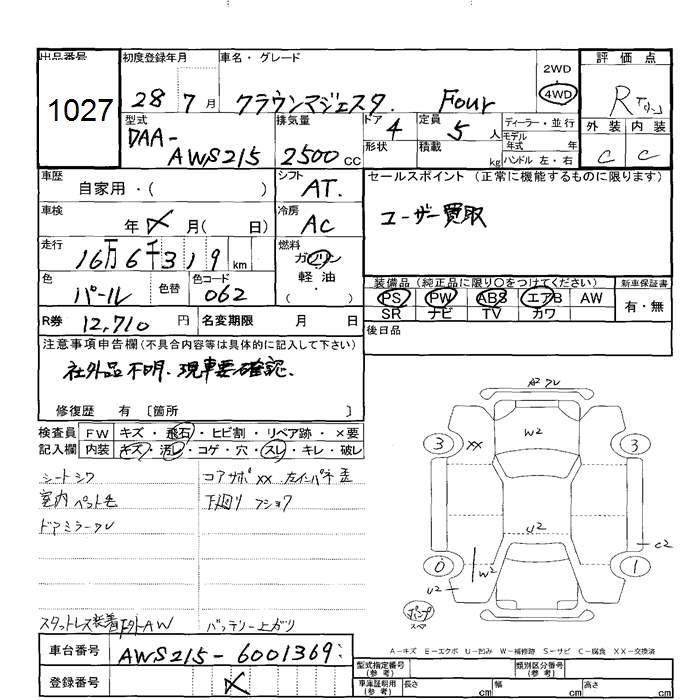 出品番号
1027
初度登録年月
28年 7月
車名・グレード
クラウンマジェスタ Four
2WD
4WD
評価点
R
外装 内装
C C
型式
DAA-
AWS215
排気量
2500 cc
ドア 4
形状
定員 5 人
積載 kg
ディーラー・並行
モデル年式 年
ハンドル 左・右
車歴
自家用・( )
シフト
AT.
セールスポイント (正常に機能するものに限ります)
ユーザー買取
車検
年 月( 日)
冷房
AC
走行
16万6千319 km
燃料
ガソリン
軽・油
( ・ )
色
パール
色替
色コード
062
装備品(純正品に限り○をつけてください)
PS PW ABS エアB AW
SR ナビ TV カワ
新車保証書
有・無
R券 12,710 円
名変期限 月 日
後日品
注意事項申告欄(不具合内容等は具体的に記入して下さい)
社外品不明、現車要確認、
修復歴 有 〔箇所 〕
検査員
記入欄
FW キズ・飛石・ヒビ割・リペア跡・×要
内装 キズ・汚レ・コゲ・穴・スレ・キレ・破レ
シートシワ
室内ペット毛
ドアミラークレ
コアサポXX 左インパネ歪
下廻り フショク
スタットレス装着 下外AW
バッテリー上がり
A2
W2
3
XX
3
U2
0
W2
U2
1
C2
スペ
A-キズ E-エクボ U-凹み W-補修跡 S-サビ C-腐食 XX-交換済
車台番号 AWS215-6001369
登録番号
型式指定番号
(参考)
類別区分番号
(参考)
車庫証明用
(参考)
長さ cm
幅 cm
高さ cm